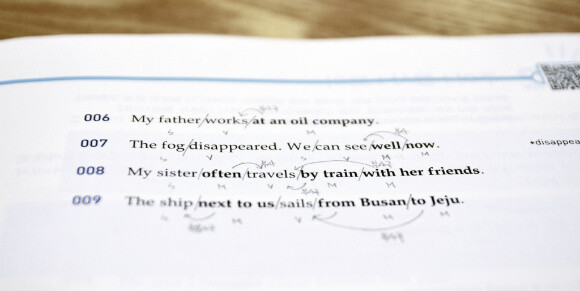 006 My father/works/at an oil company.
007 The fog/disappeared. We/can see/well/now. *disappea
008 My sister/often/travels/by train/with her friends.
009 The ship/next to us/sails/from Busan/to Jeju.